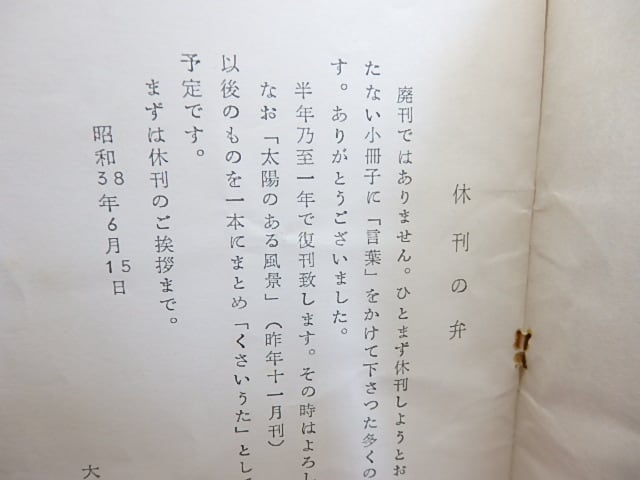 休刊の弁
廃刊ではありません。ひとまず休刊しようとお
たない小冊子に「言葉」をかけて下さつた多くの
す。ありがとうございました。
半年乃至一年で復刊致します。その時はよろし
なお「太陽のある風景」（昨年十一月刊）
以後のものを一本にまとめ「くさいうた」として
予定です。
まずは休刊のご挨拶まで。
昭和38年6月15日
大